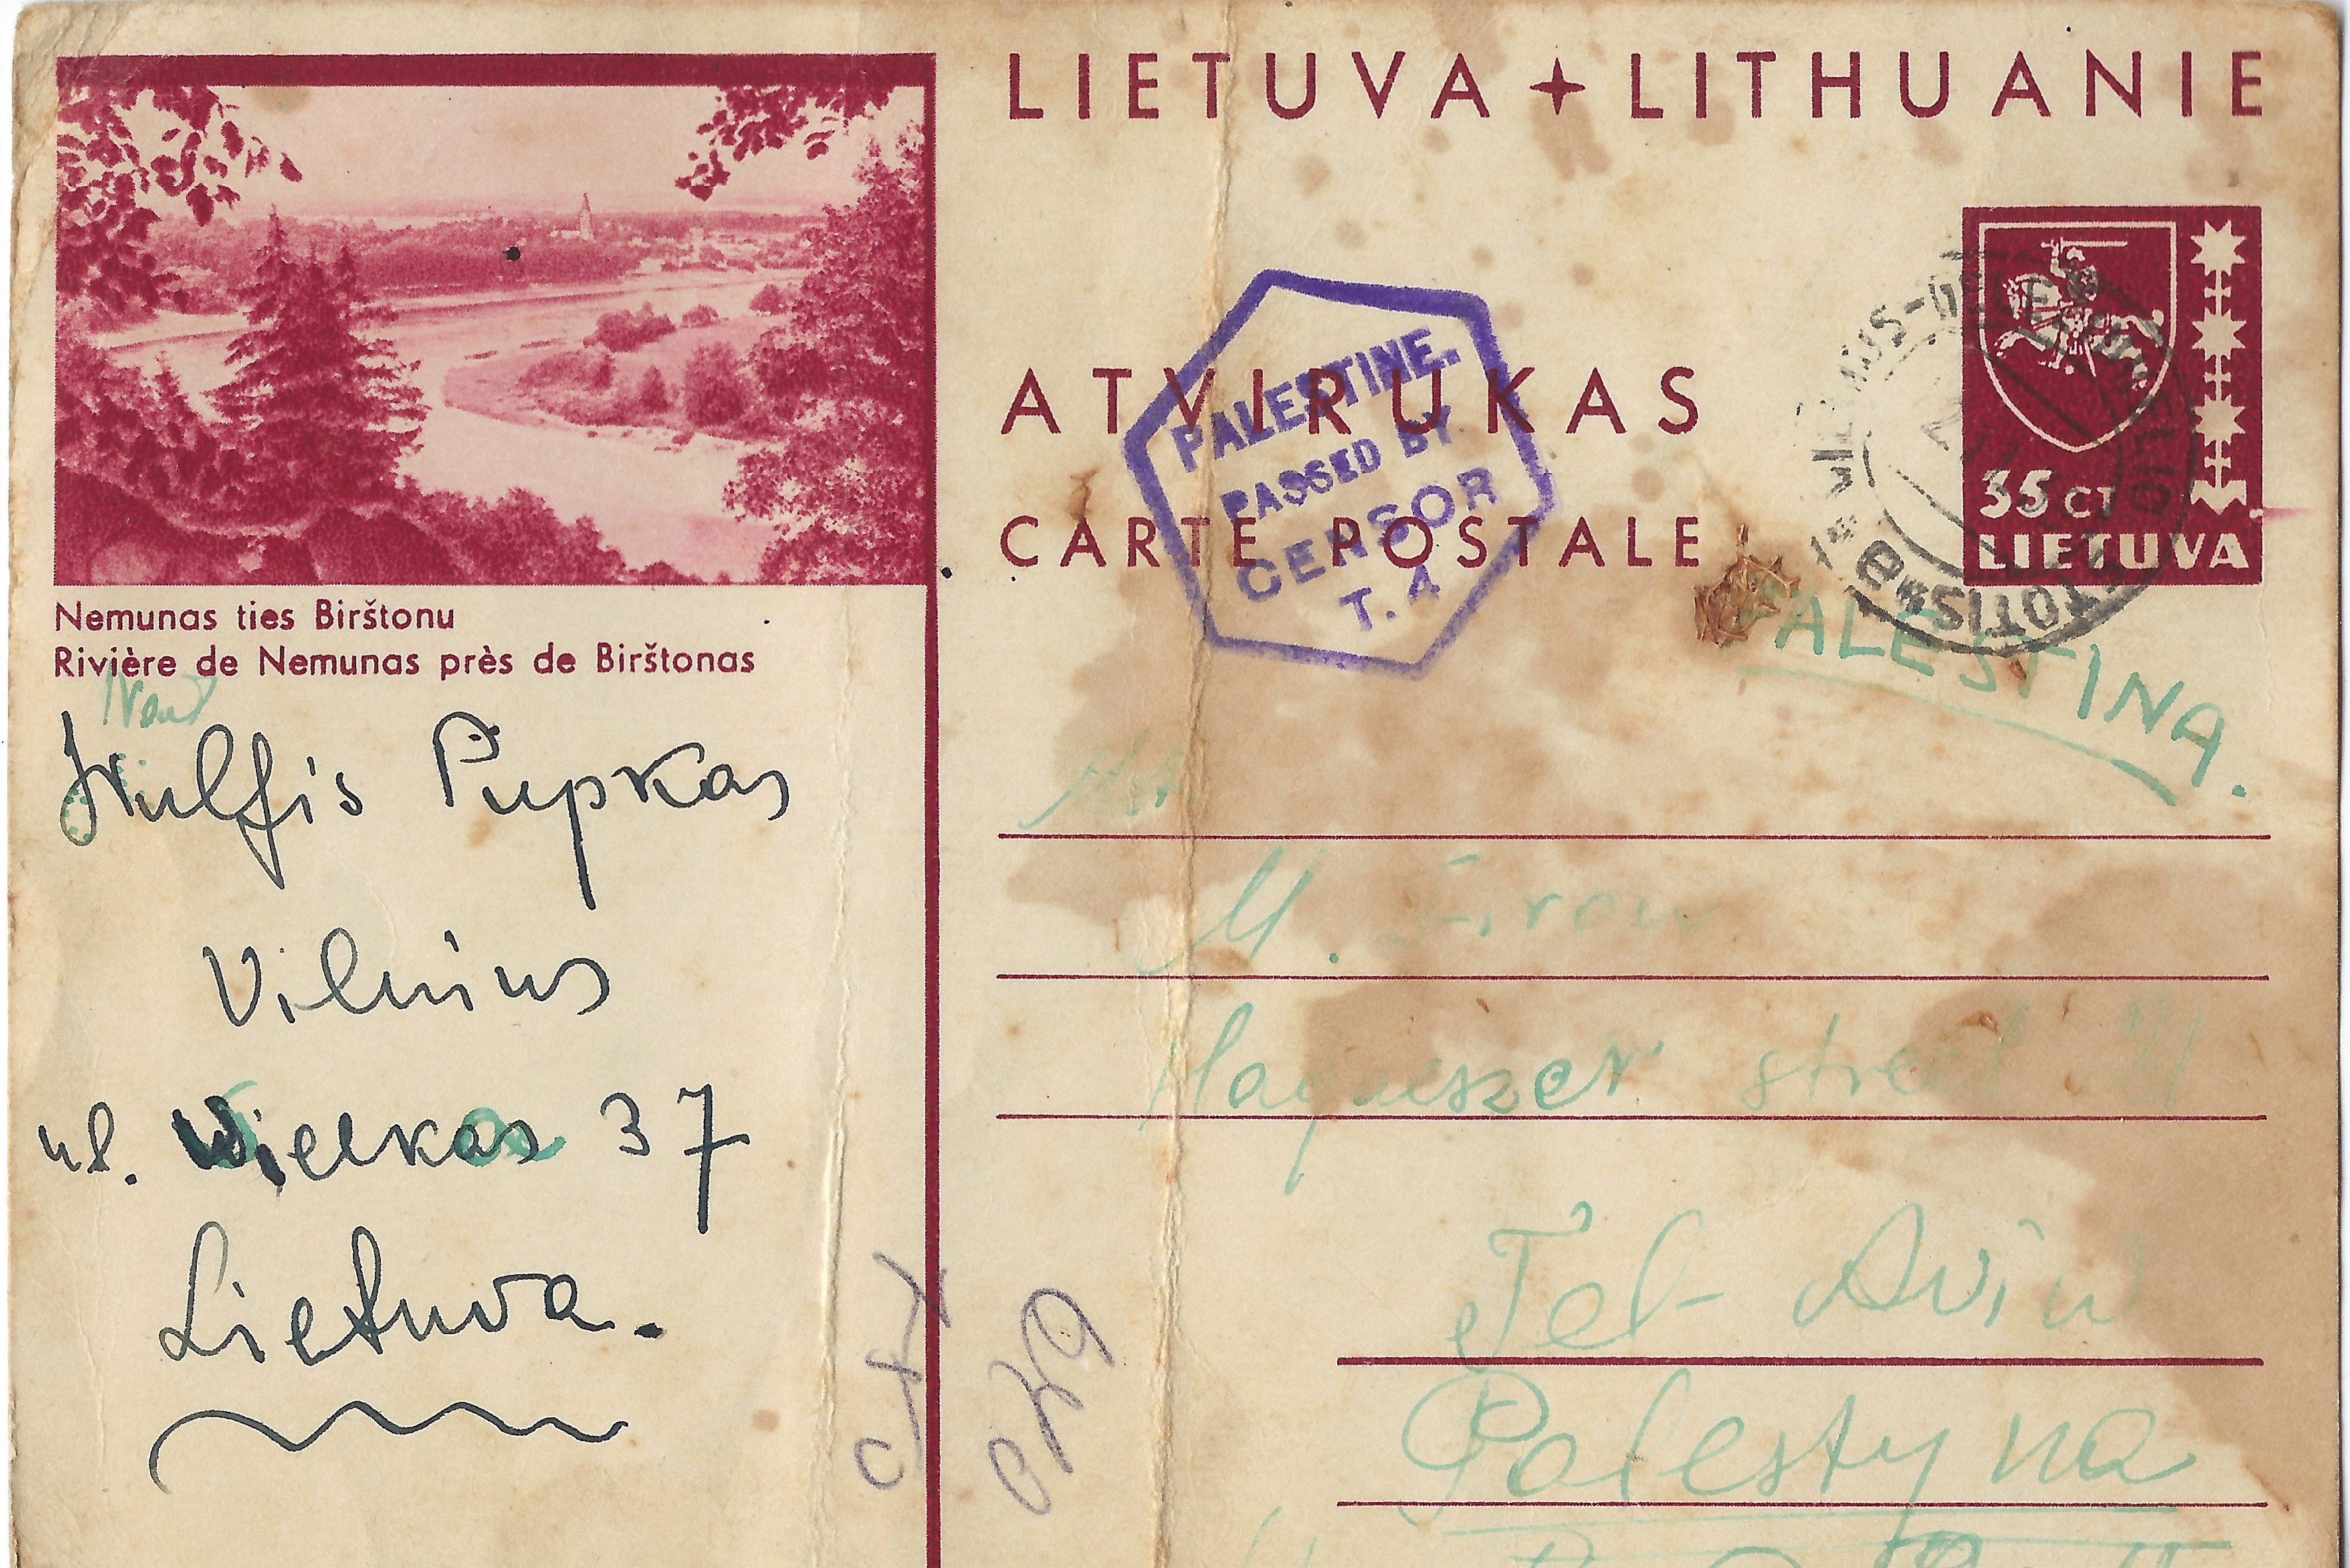 LIETUVA + LITHUANIE
ATVIRUKAS
CARTE POSTALE
PALESTINE.
PASSED BY
CENSOR
T. 4
35 CT
LIETUVA
Nemunas ties Birštonu
Rivière de Nemunas près de Birštonas
Pupkas
Vilnius
ul. Wielkas 37
Lietuva.
PALESTINA.
M.
street
Tel-Aviv
Palestyna